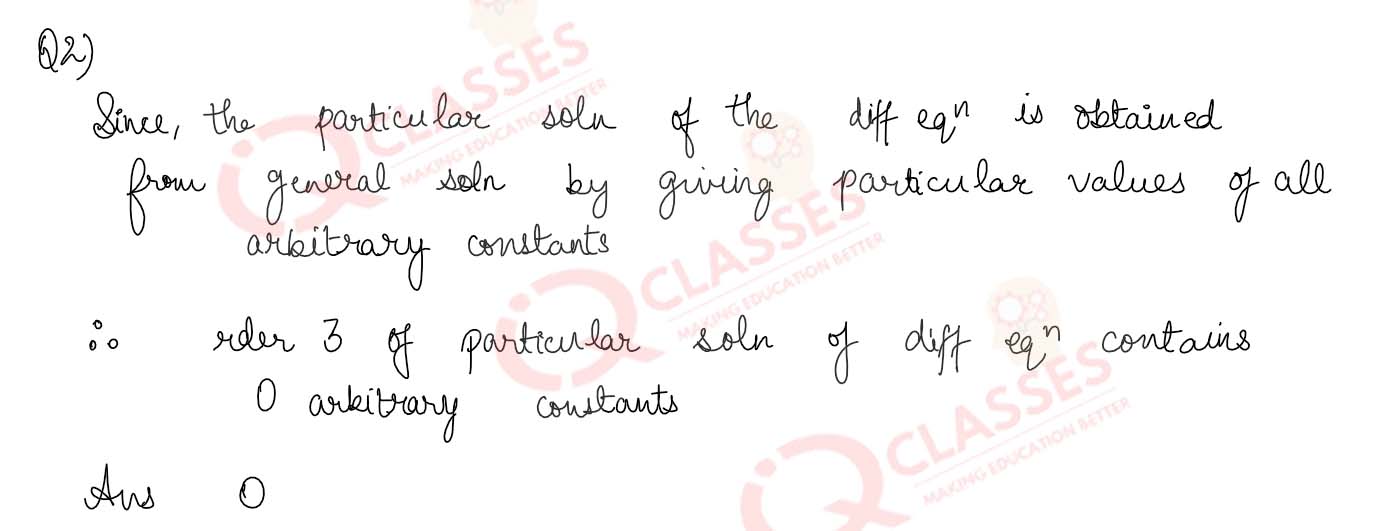 Q2)
Since, the particular soln of the diff eqⁿ is obtained
from general soln by giving particular values of all
arbitrary constants
∴ rder 3 of particular soln of diff eqⁿ contains
0 arbitrary constants
Ans 0
CLASSES
MAKING EDUCATION BETTER
CLASSES
MAKING EDUCATION BETTER
CLASSES
MAKING EDUCATION BETTER